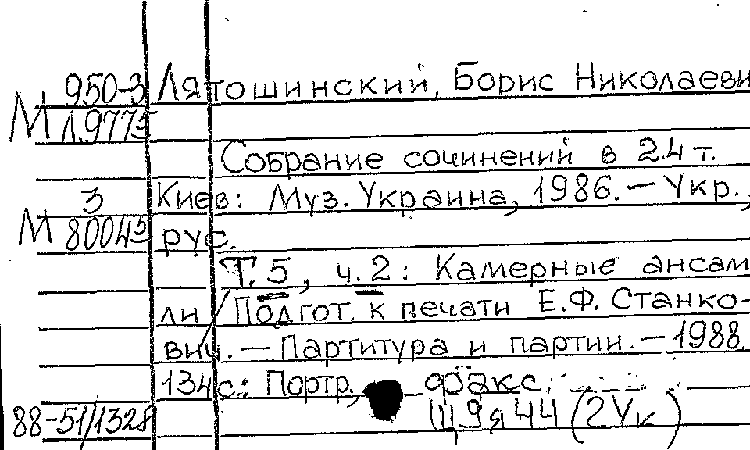 950-3 Лятошинский, Борис Николаеви
М Л.9775
Собрание сочинений в 24 т.
3 Киев: Муз. Украина, 1986. — Укр.,
М 80045 рус.
Т. 5, ч. 2: Камерные ансам
ли / Подгот. к печати Е.Ф. Станко-
вич. — Партитура и партии. — 1988
134 с.: Портр., факс.
88-51/1328 Щ 9 я 44 (2Ук)